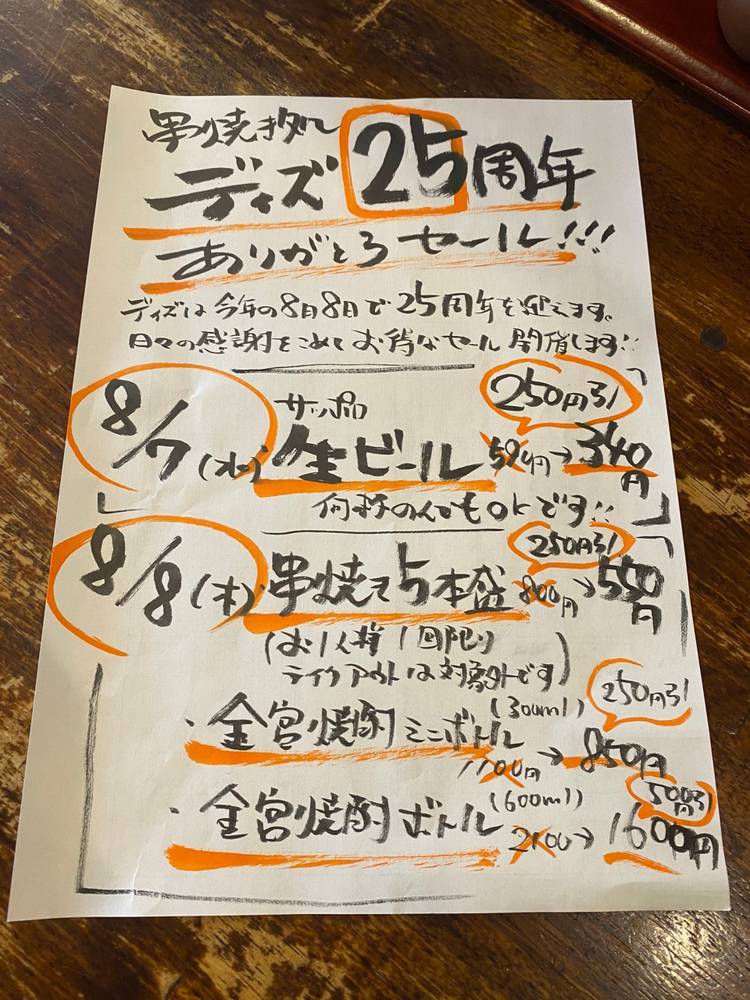 串焼き処
ディズ 25周年
ありがとうセール!!!
ディズは今年の8月8日で25周年を迎えます。
日々の感謝をこめてお得なセール開催します!!
8/7(水) サッポロ 250円引
生ビール 594円→340円
何杯のんでもOKです!!
8/8(木) 250円引
串焼き5本盛 800円→550円
(お1人様1回限り
テイクアウトは対象外です)
250円引
・金宮焼酎ミニボトル(300ml)
1100円→850円
500円引
・金宮焼酎ボトル(600ml)
2100→1600円